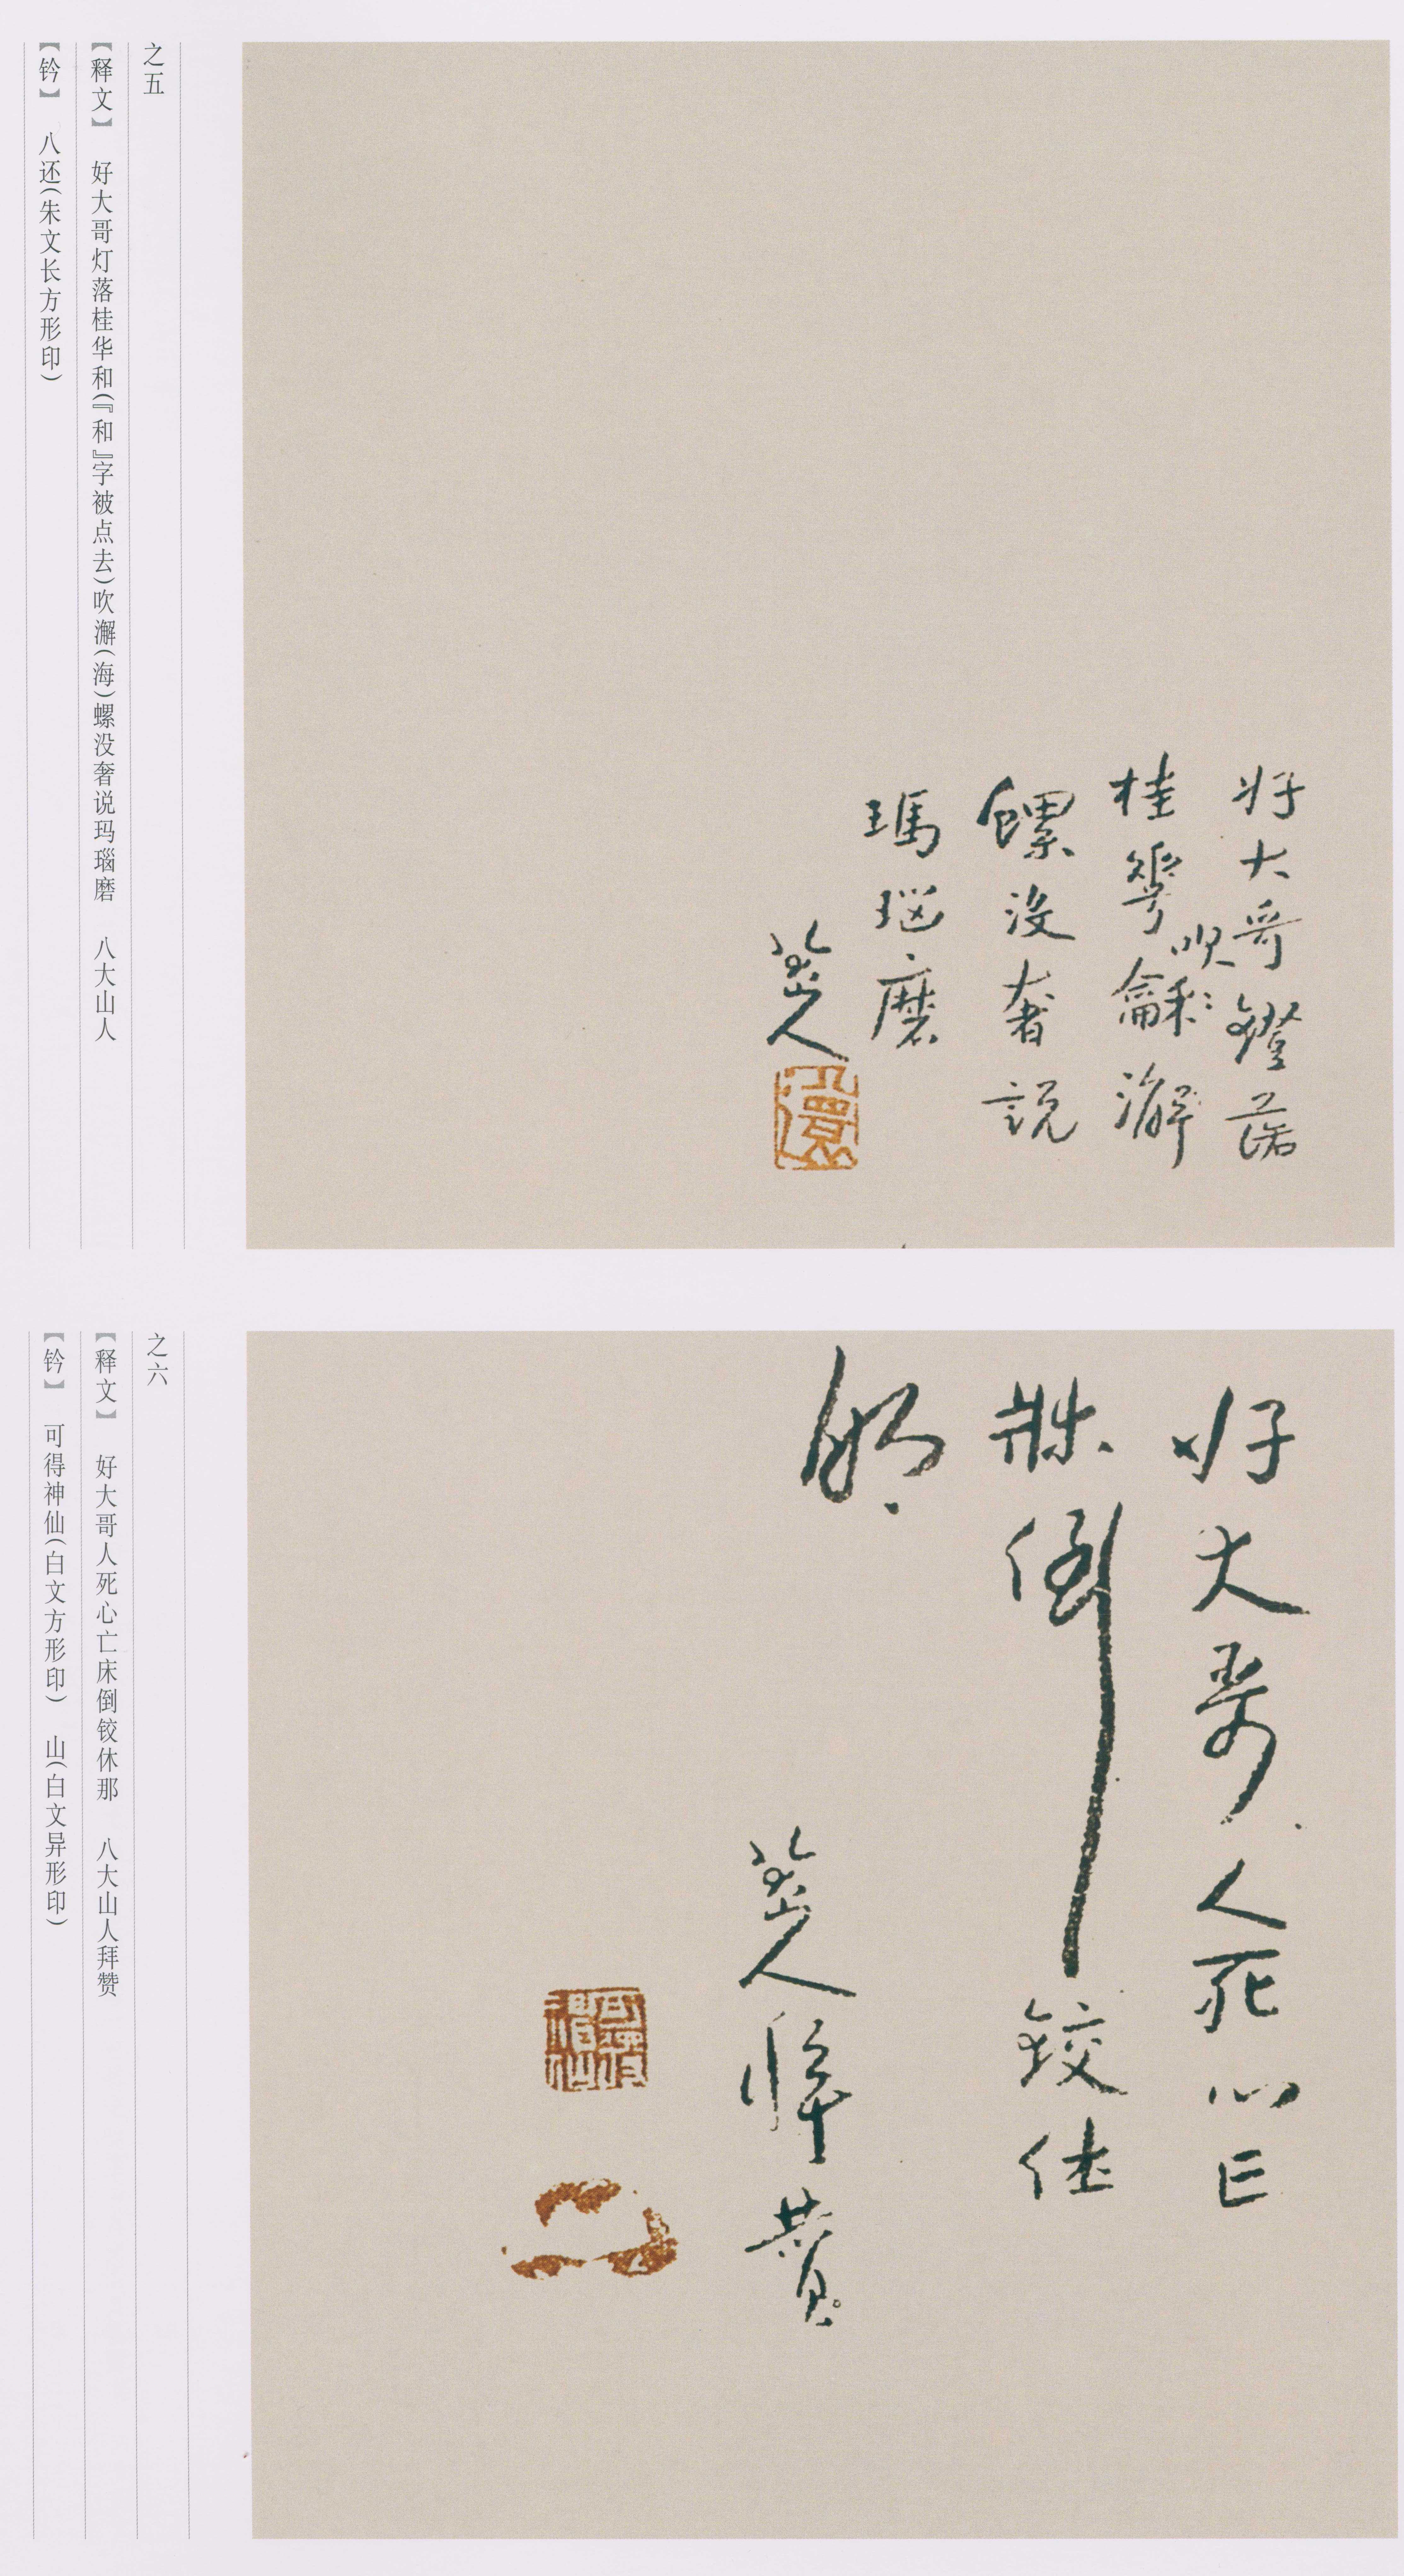 好大哥鐙落
桂華龢吹澥
螺没奢説
瑪瑙磨
八大山人
八還
之五
【释文】 好大哥灯落桂华和(『和』字被点去)吹澥(海)螺没奢说玛瑙磨 八大山人
【钤】 八还(朱文长方形印)
好大哥人死心亡
牀倒鉸休
那
八大山人拜赞
可得神仙
之六
【释文】 好大哥人死心亡床倒铰休那 八大山人拜赞
【钤】 可得神仙(白文方形印) 山(白文异形印)